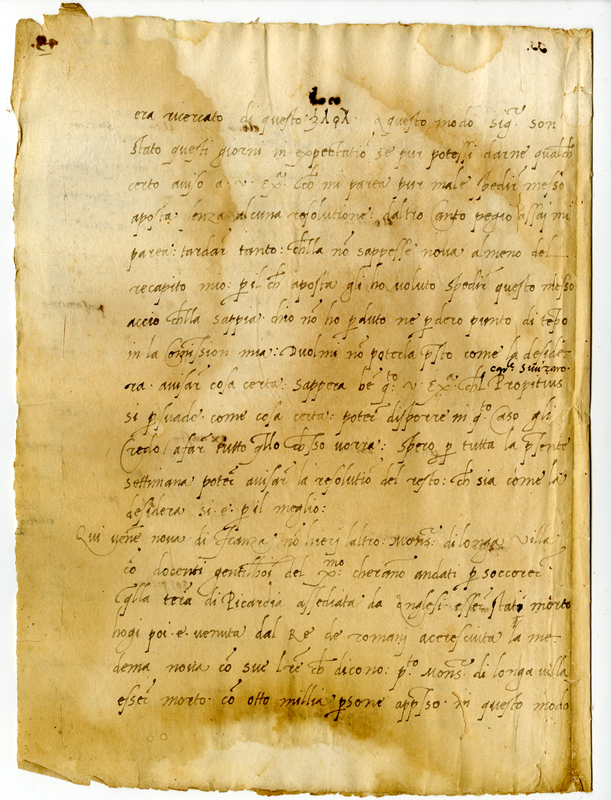 era ricercato di questo. questo modo Sig.r son
stato questi giorni in expectatiõ se pur potessi darne qualch
certo aviso a. v. Ex.a ch mi parea pur male spedir messo
aposta. senza alcuna resolutione: daltro canto pegio assai mi
parea: tardar tanto: chlla nõ sappesse nova almeno del
recapito mio: p il ch aposta gli ho voluto spedir questo messo
accio chlla sappia. chio nõ ho pduto ne pdero punto di tẽpo
in la Comission mia: Duolmi nõ poterla psto come la deside-
Suizaro.
ra. avisar cosa certa: Sappera bẽ q.to v. Ex.a. ch l Propitius
si psuade. come cosa certa: poter disporre in q.to Caso gli
credo afar tutto qllo ch sso vorra: Spero p tutta la psente
settimana poter avisar la resolutiõ del resto: ch sia come la
desidera si. e. p il meglio:
Qui venẽ nova di Franza nõ hieri laltro: Mons.r di longa Villa
cõ docenti gentilhõi del X.mo cherano andati p soccorer
qlla terra di Picardia assediata da Inglesi. esser stato morto
hogi poi. e. venuta dal Re de romani accresciuta la me-
dema nova cõ sue lre ch dicono: p.to Mons.r di longa villa
esser morto. cõ otto millia psone appsso. in questo modo